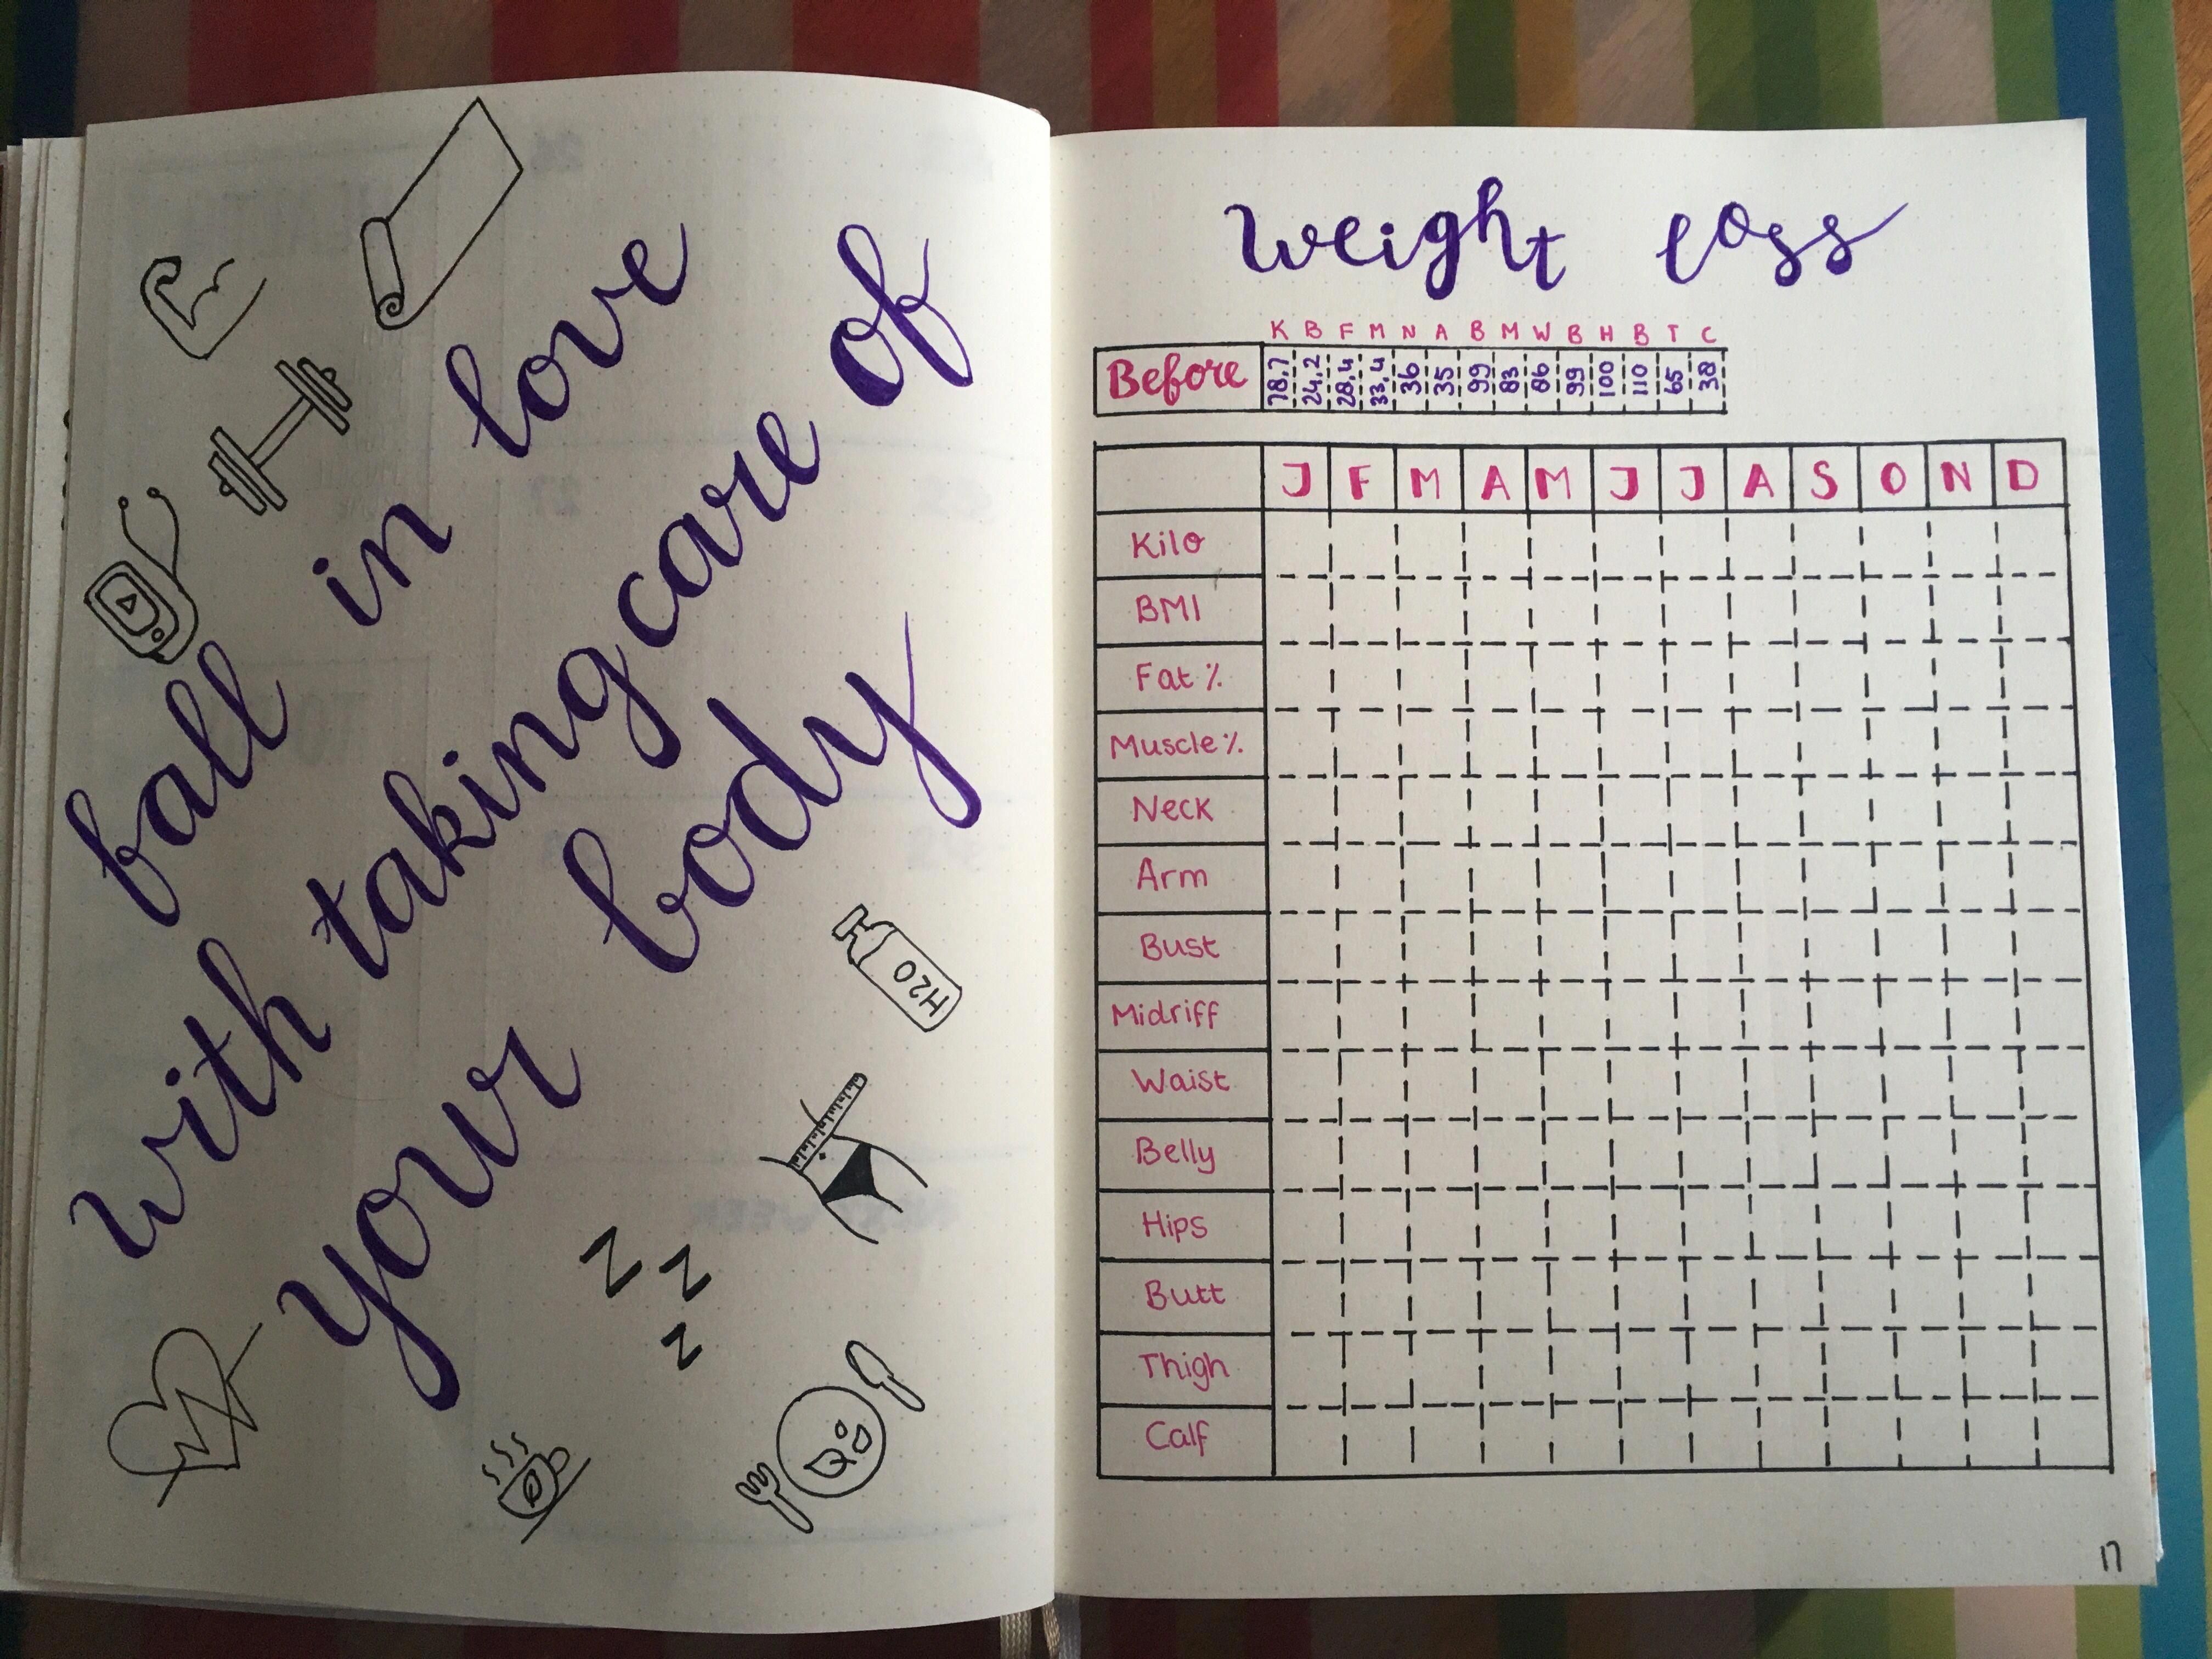 fall in love
with taking care of
your body
H2O
Z Z
Z
weight loss
K B F M N A B M W B H B T C
Before 78,7 24,2 28,4 33,4 36 35 99 83 86 99 100 110 65 38
J F M A M J J A S O N D
Kilo
BMI
Fat %
Muscle %
Neck
Arm
Bust
Midriff
Waist
Belly
Hips
Butt
Thigh
Calf
17